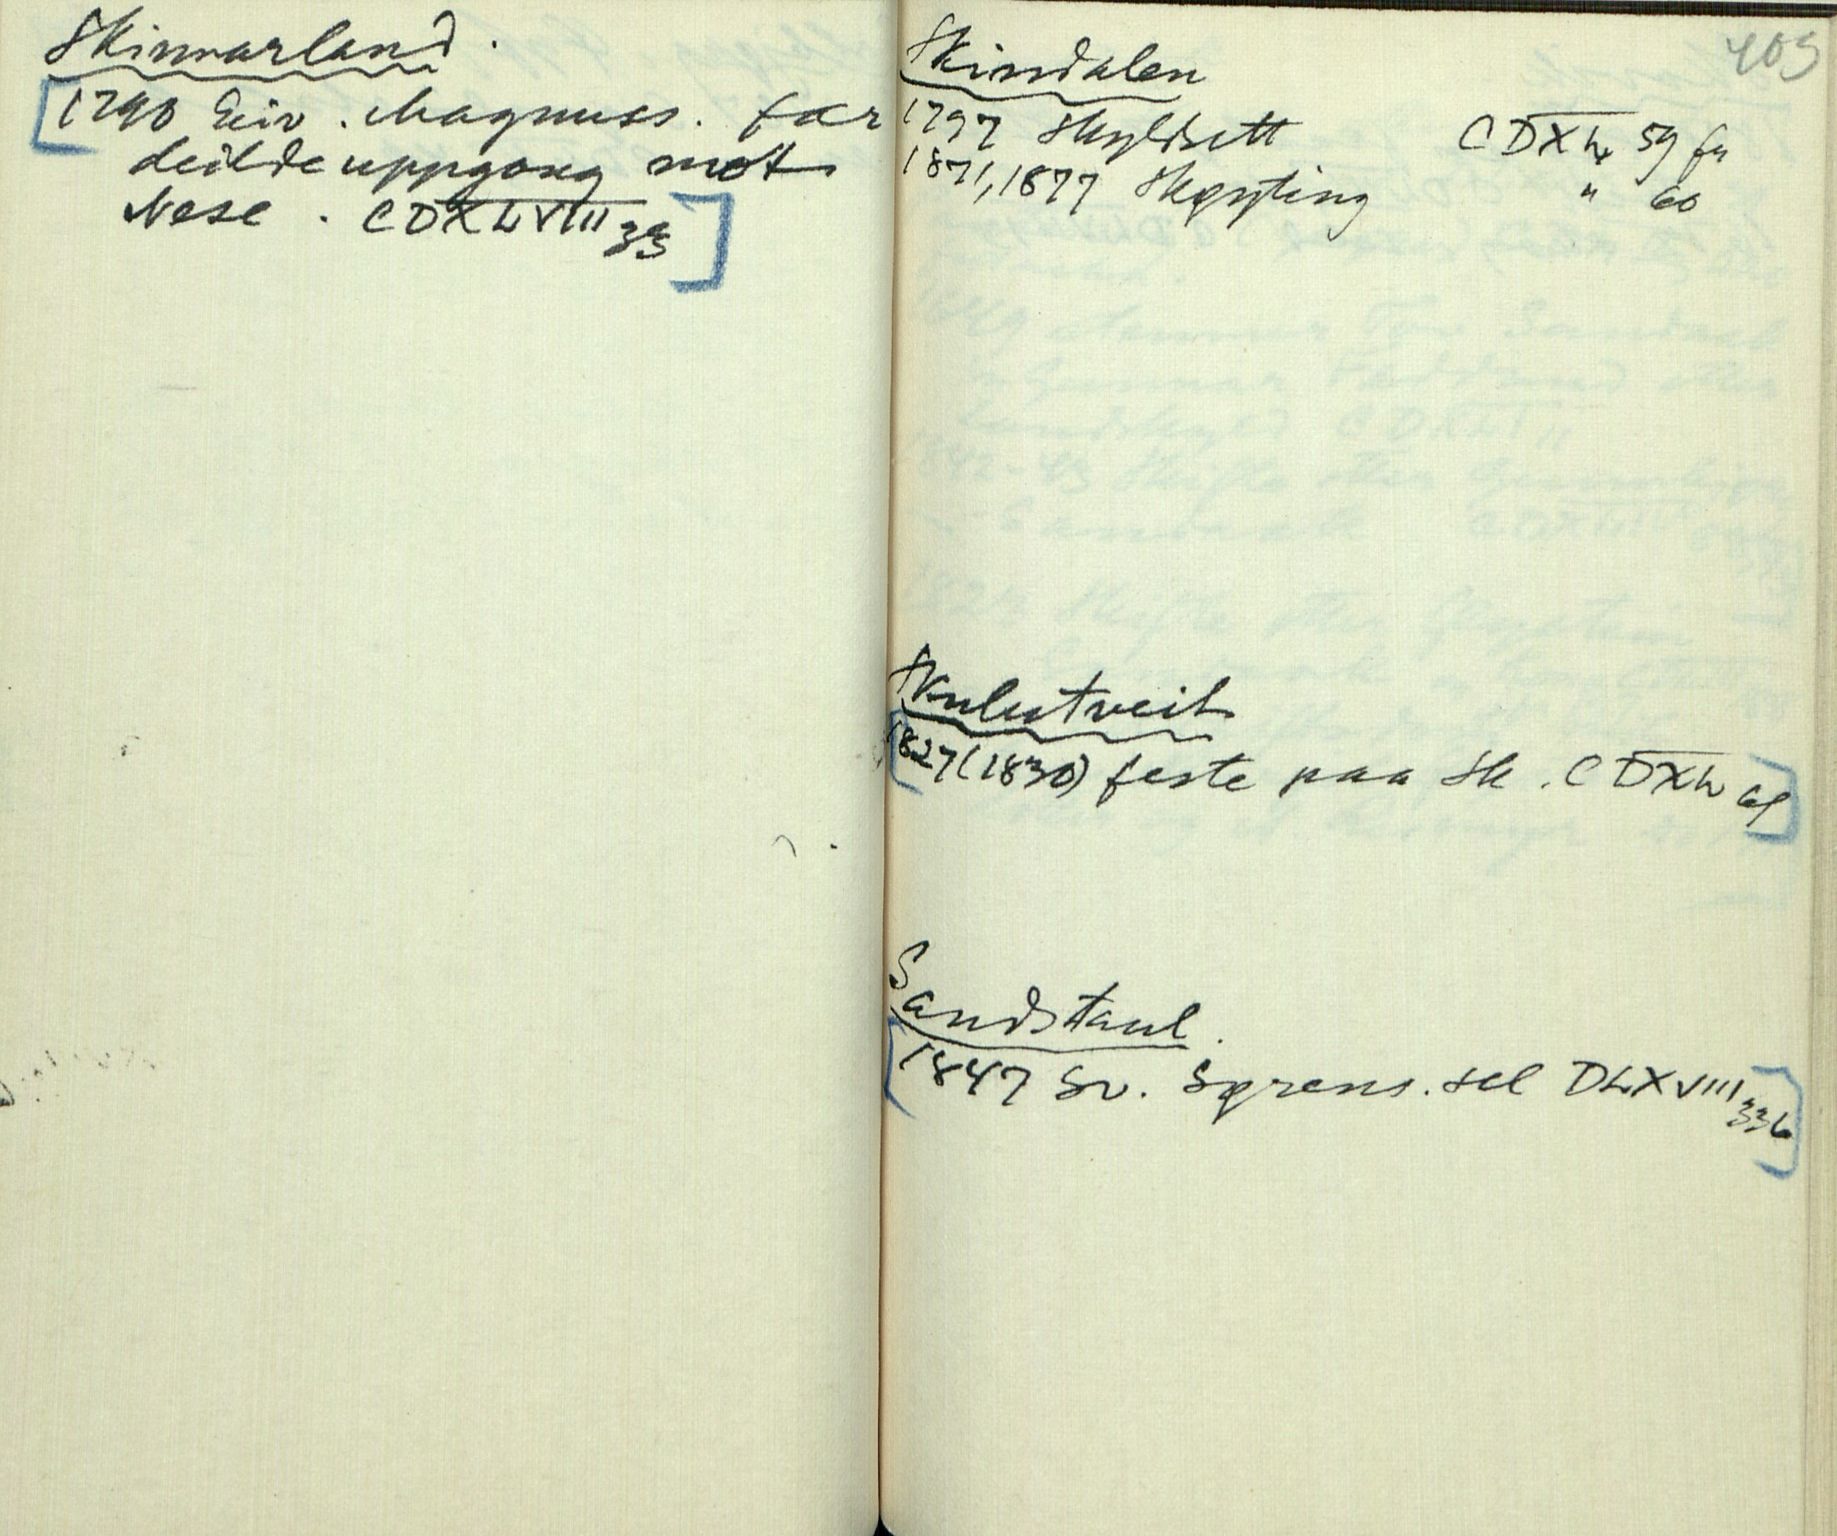 Skinnarland.
[1790 Eiv. Magnuss. fær
deildeuppgang mot
Nese. CDXLVIII 33]
403
Skindalen
1797 Skyldsett CDXL 59 fu
1871, 1877 Skøyting " 60
Skulestveit
[1827 (1830) feste paa Sk. CDXL 61]
Sandstaul.
[1847 Sv. Sørens. sel DLXVIII 336]